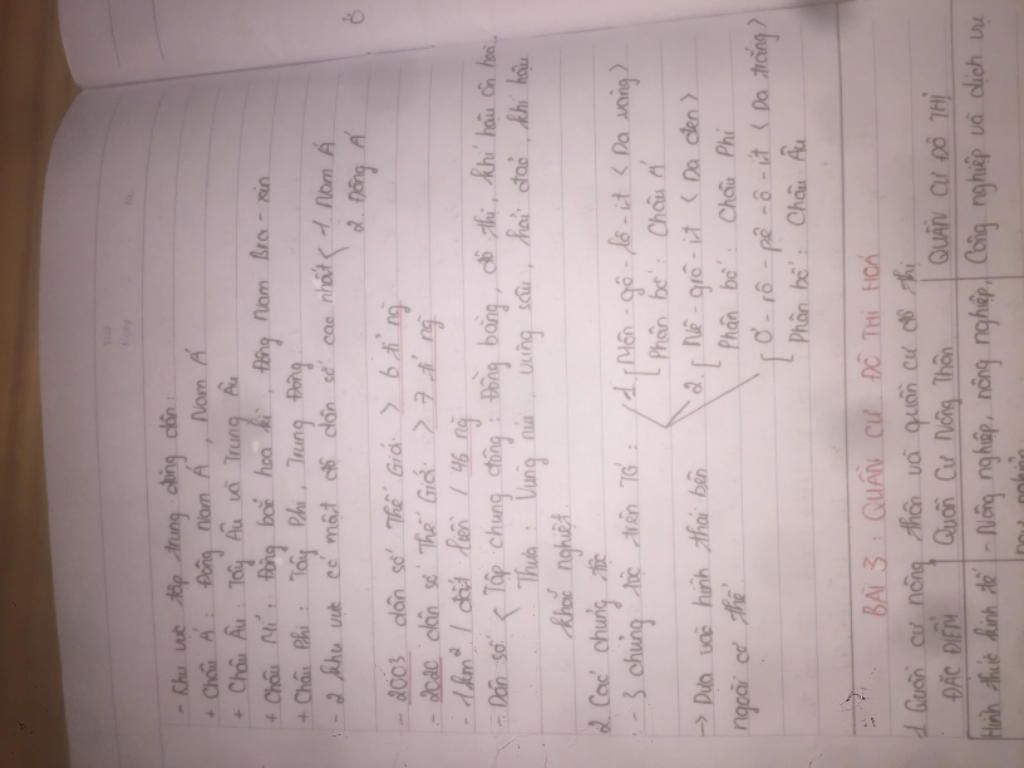 - Khu vực tập trung đông dân:
+ Châu Á: Đông Nam Á, Nam Á
+ Châu Âu: Tây Âu và Trung Âu
+ Châu Mĩ: Đông bắc hoa kì, Đông Nam Bra-xin
+ Châu Phi: Tây Phi, Trung Đông
- 2 khu vực có mật độ dân số cao nhất < 1 Nam Á
2 Đông Á
- 2003 dân số Thế Giới > 6 tỉ ng
- dân số Thế Giới > 7 tỉ ng
- 1km² / đất liền / 46 ng
- Dân số < Tập chung đông: Đồng bằng, đô thị, khí hậu ôn hoà,
Thưa: Vùng núi, vùng sâu, hải đảo, khí hậu
khắc nghiệt.
2 Các chủng tộc
- 3 chủng tộc trên TG: 1 [ Môn-gô-lô-it < Da vàng >
Phân bố: Châu Á
2 [ Nê-grô-it < Da đen >
-> Dựa vào hình thái bên
Phân bố: Châu Phi
ngoài cơ thể
[ Ơ-rô-pê-ô-it < Da trắng >
Phân bố: Châu Âu
BÀI 3: QUẦN CƯ ĐÔ THỊ HOÁ
1 Quần cư nông thôn và quần cư đô thị
ĐẶC ĐIỂM Quần Cư Nông Thôn QUẦN CƯ ĐÔ THỊ
Hình thức kinh tế - Nông nghiệp, nông nghiệp, Công nghiệp và dịch vụ